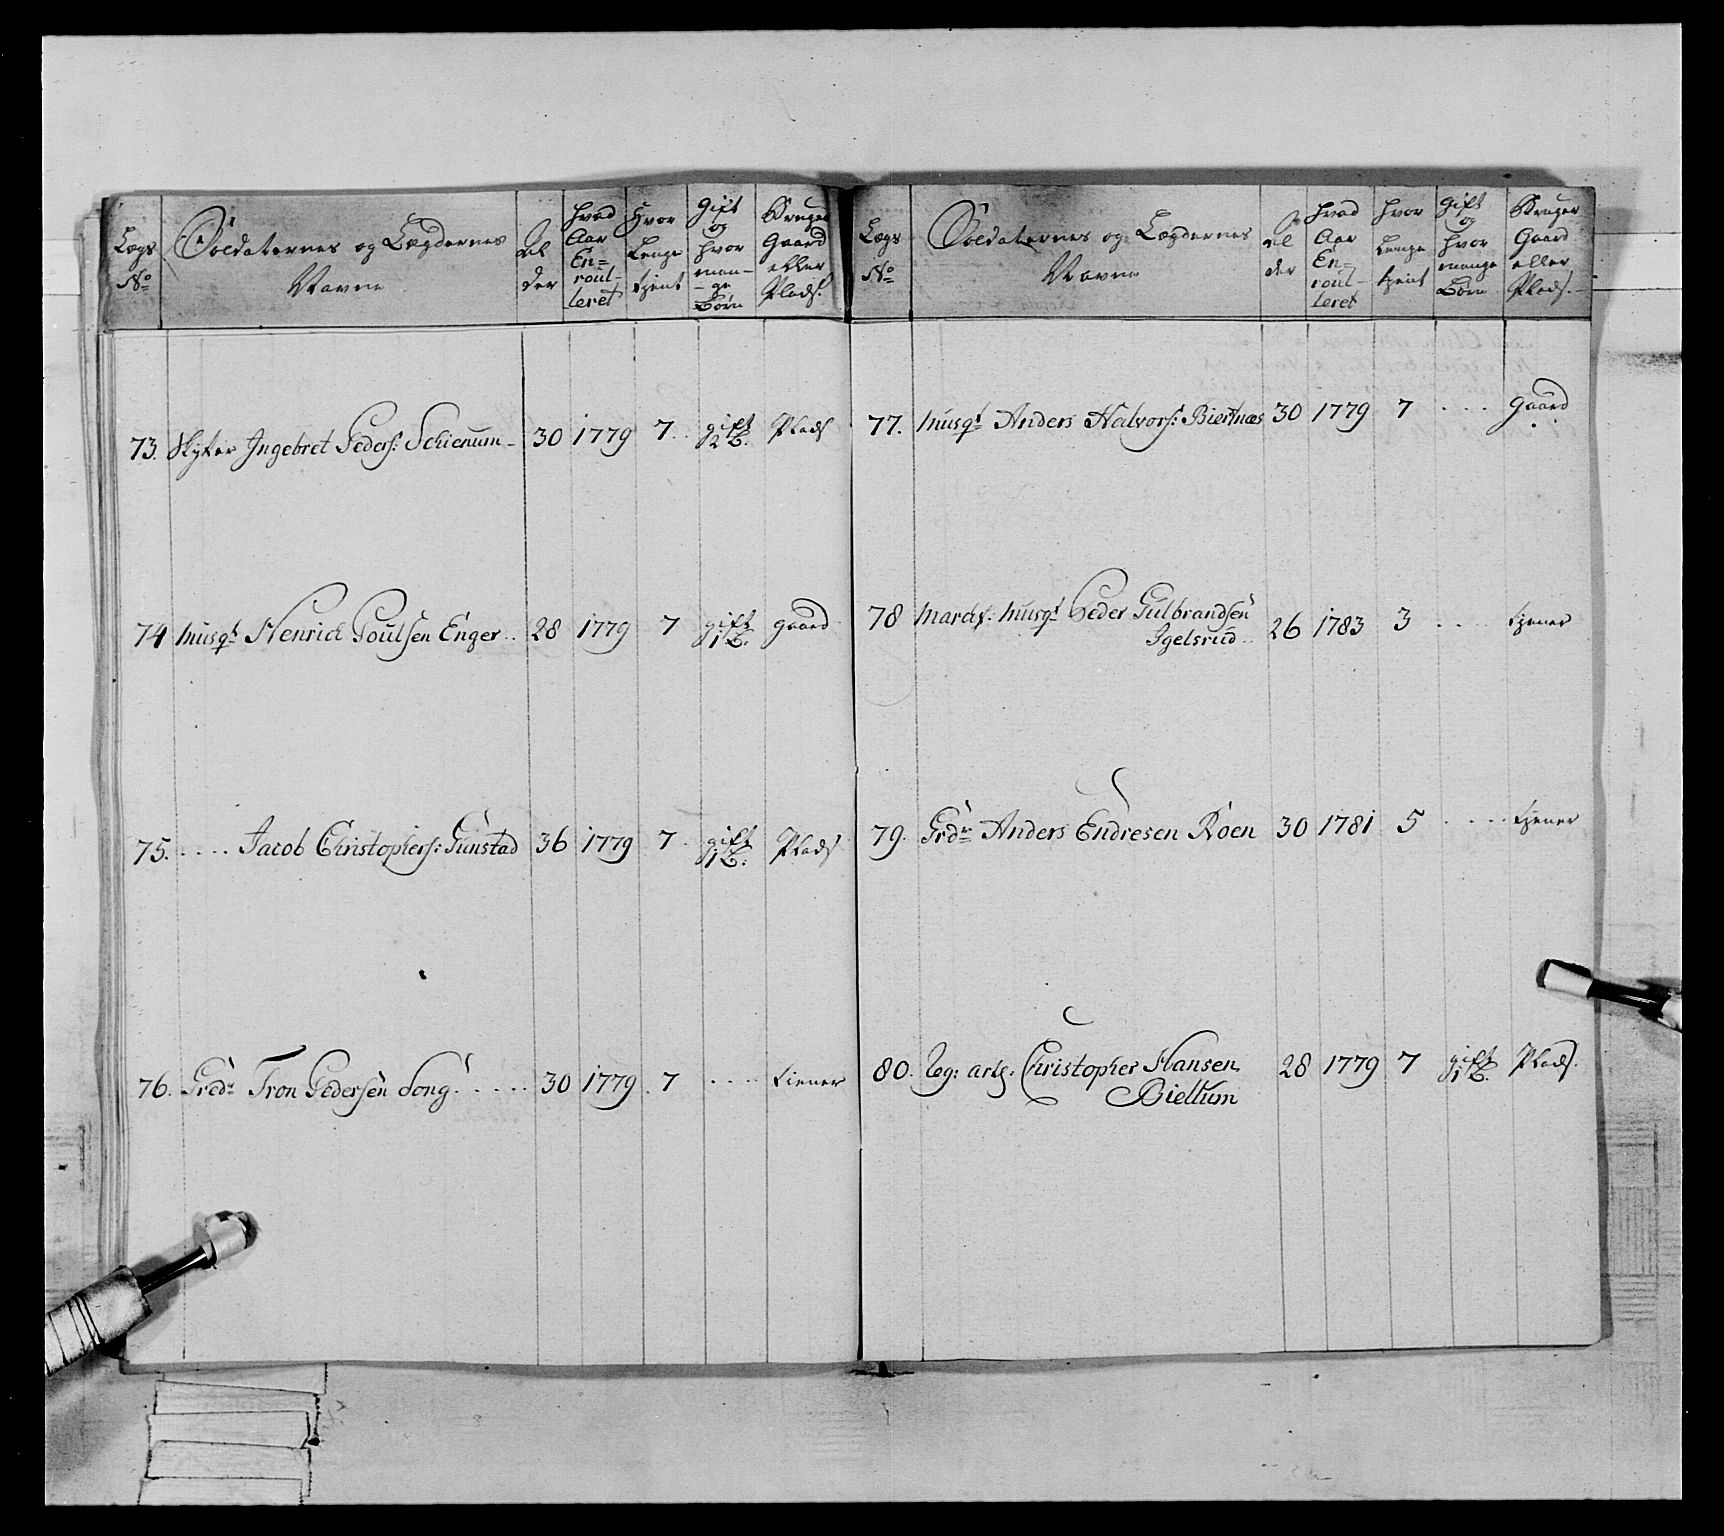 Lægs No | Soldaternes og Lægdernes Navne | Alder | Hvad Aar Enroulleret | Hvor Lenge tient | Gift og hvor mange Børn | Bruger Gaard eller Plads.
73. Skytter Ingebret Peders: Schienum | 30 | 1779 | 7 | gift 2 B. | Plads
74 Musqt Henrich Poulsen Enger | 28 | 1779 | 7 | gift 1 B. | gaard
75. .... Jacob Christophers: Gunstad | 36 | 1779 | 7 | gift 1 B. | Plads
76. Gredr Tron Pedersen Song | 30 | 1779 | 7 | .... | tiener
Lægs No | Soldaternes og Lægdernes Navne | Alder | Hvad Aar Enroulleret | Hvor Lenge tient | Gift og hvor mange Børn | Bruger Gaard eller Plads.
77. Musqt Anders Halvors: Biertnæs | 30 | 1779 | 7 | .... | gaard
78 Musqt Peder Gulbrandsen
Igelsrud | 26 | 1783 | 3 | .... | tjener
79. Grdr Anders Endresen Roen | 30 | 1781 | 5 | .... | tjener
80. Christopher Hansen
Biellum | 28 | 1779 | 7 | gift 1 B. | Plads.